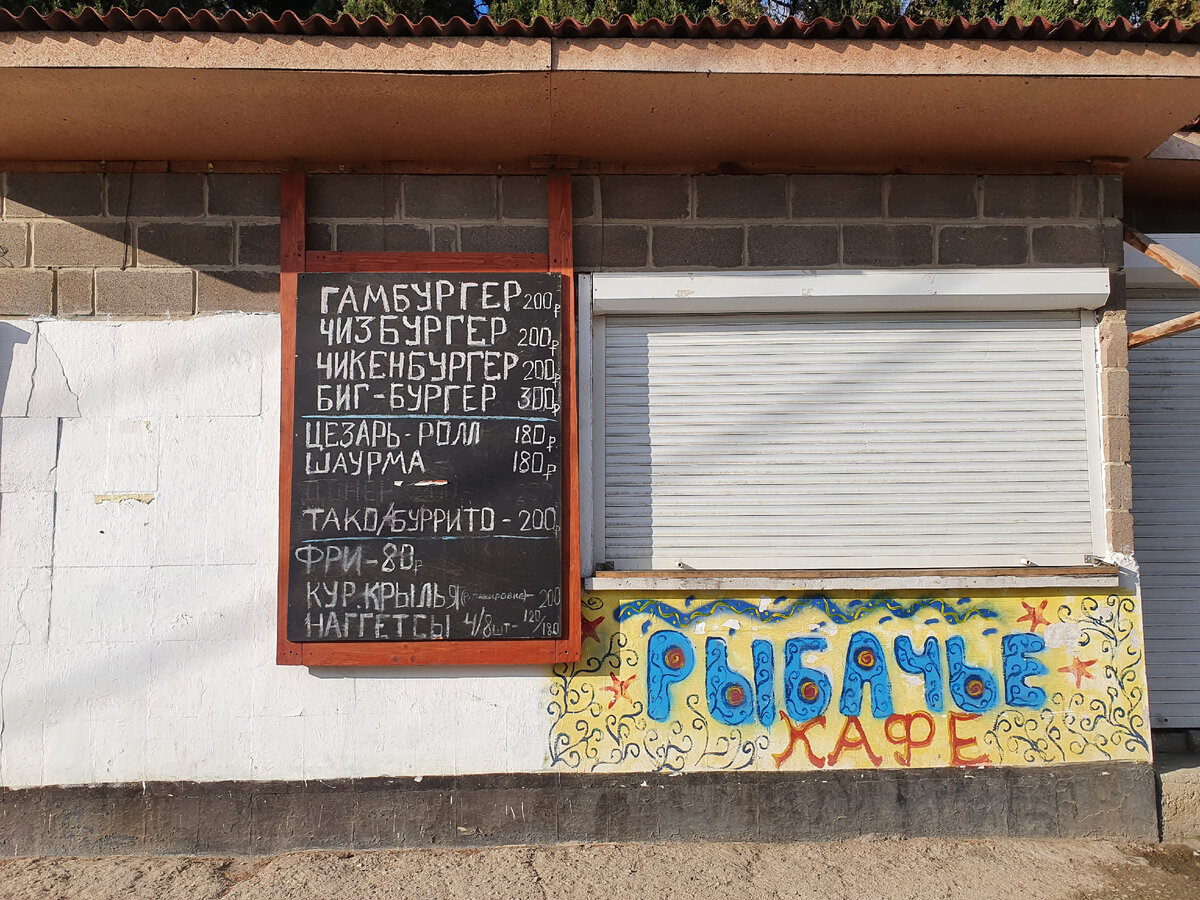 ГАМБУРГЕР 200р
ЧИЗБУРГЕР 200р
ЧИКЕНБУРГЕР 200р
БИГ-БУРГЕР 300р
ЦЕЗАРЬ-РОЛЛ 180р
ШАУРМА 180р
ДОНЕР
ТАКО/БУРРИТО - 200р
ФРИ - 80р
КУР.КРЫЛЬЯ - 200
НАГГЕТСЫ 4/8шт- 120/180
РЫБАЧЬЕ
КАФЕ